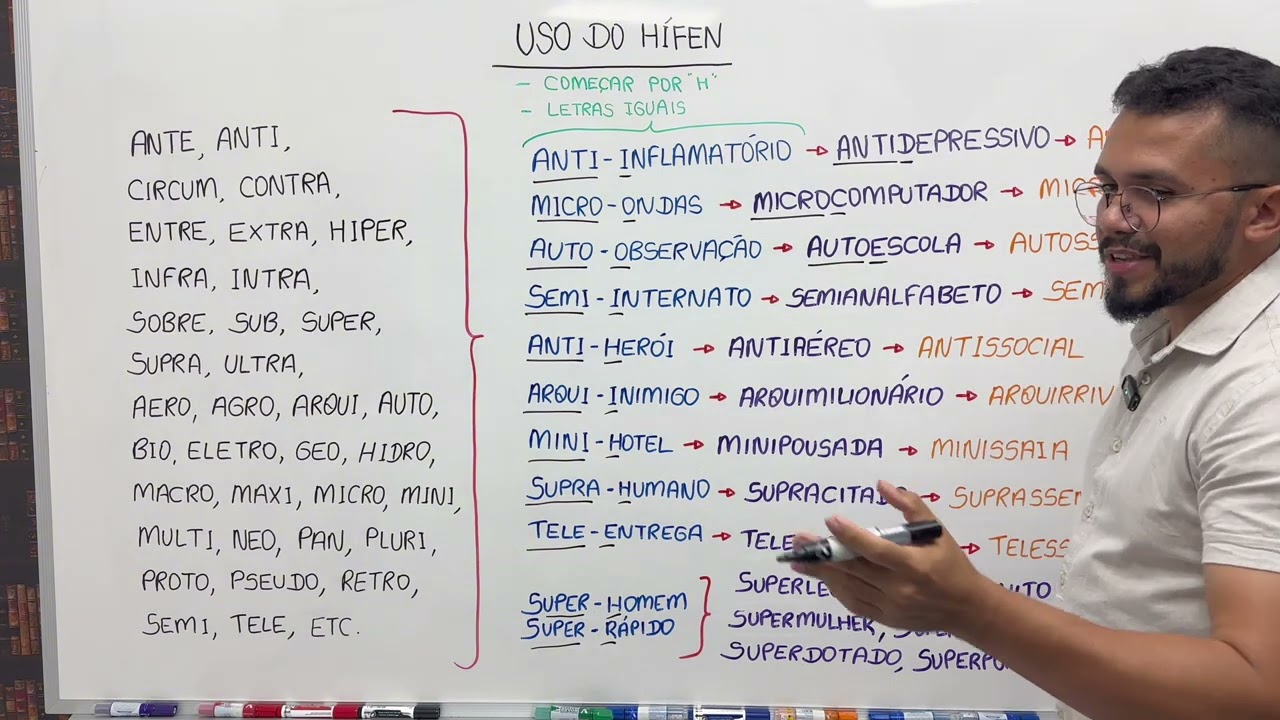 USO DO HÍFEN
- COMEÇAR POR "H"
- LETRAS IGUAIS
ANTE, ANTI,
CIRCUM, CONTRA,
ENTRE, EXTRA, HIPER,
INFRA, INTRA,
SOBRE, SUB, SUPER,
SUPRA, ULTRA,
AERO, AGRO, ARQUI, AUTO,
BIO, ELETRO, GEO, HIDRO,
MACRO, MAXI, MICRO, MINI,
MULTI, NEO, PAN, PLURI,
PROTO, PSEUDO, RETRO,
SEMI, TELE, ETC.
ANTI-INFLAMATÓRIO → ANTIDEPRESSIVO →
MICRO-ONDAS → MICROCOMPUTADOR →
AUTO-OBSERVAÇÃO → AUTOESCOLA → AUTOSS
SEMI-INTERNATO → SEMIANALFABETO → SEM
ANTI-HERÓI → ANTIAÉREO → ANTISSOCIAL
ARQUI-INIMIGO → ARQUIMILIONÁRIO → ARQUIRRIV
MINI-HOTEL → MINIPOUSADA → MINISSAIA
SUPRA-HUMANO → SUPRACITADO → SUPRASSEN
TELE-ENTREGA → TELE → TELESS
SUPER-HOMEM
SUPER-RÁPIDO
SUPERLE
SUPERMULHER,
SUPERDOTADO,